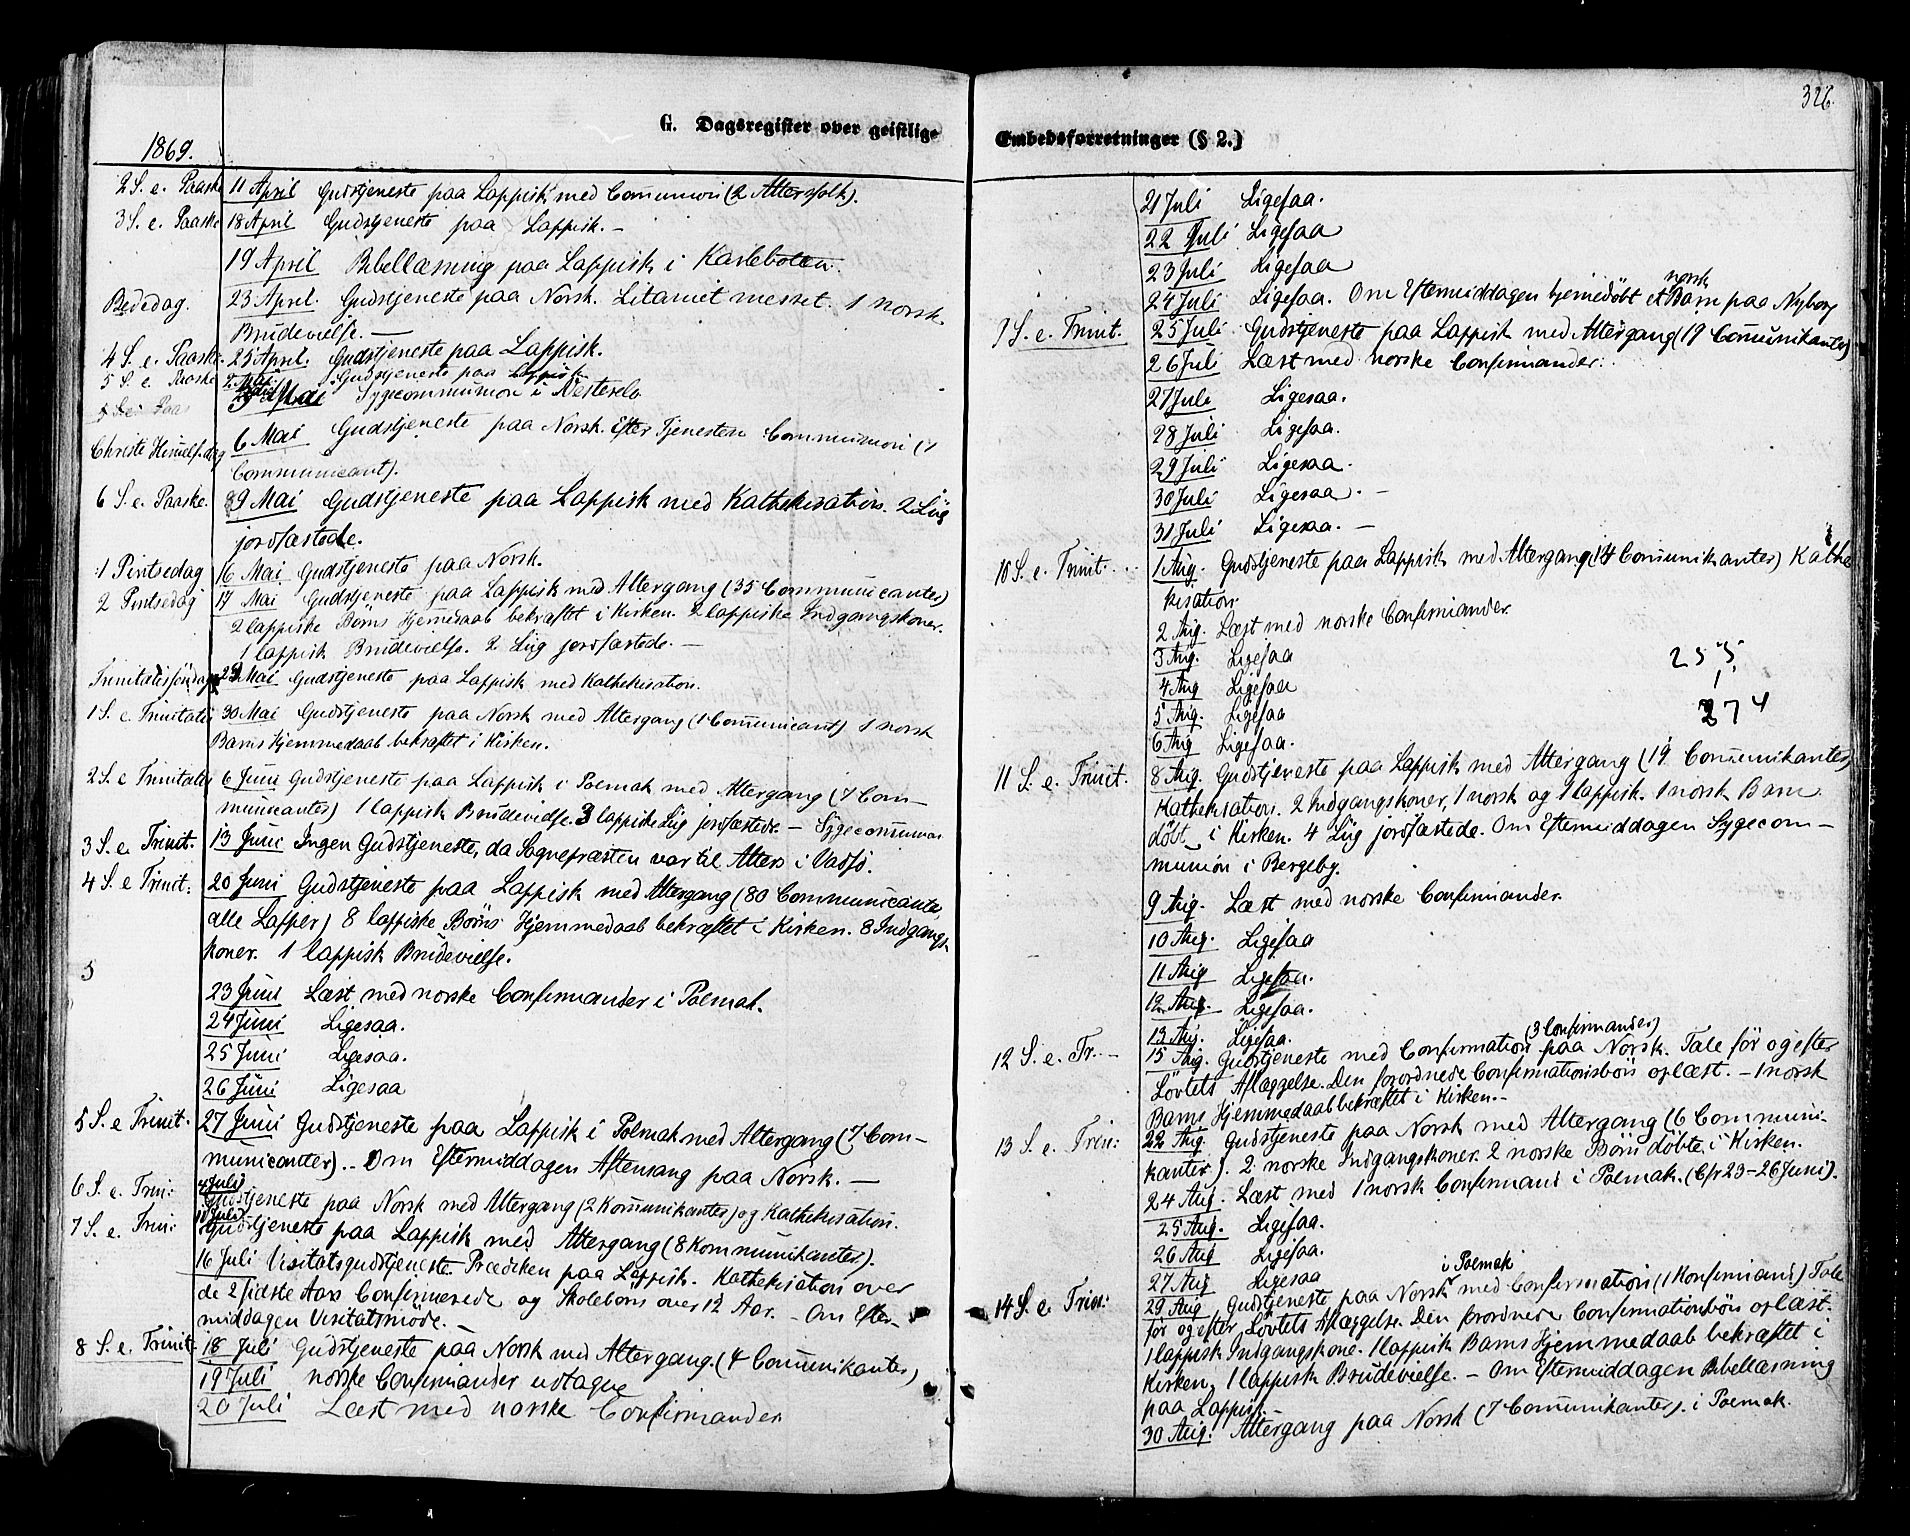 G. Dagsregister over geistlige
1869.
2 S. e. Paaske 11 April Gudstjeneste paa Lappisk med Communion (2 Altersfolk).
3 S. e. Paaske 18 April Gudstjeneste paa Lappisk. –
19 April Bibellæsning paa Lappisk i Karlebotn.
Bededag. 23 April. Gudstjeneste paa Norsk. Litaniet messet. 1 norsk
Brudevielse. —
4 S. e. Paaske. 25 April. Gudstjeneste paa Lappisk.
5 S. e. Paaske 2 Mai Gudstjeneste paa Lappisk
Mai Sygecommunion i Nesteselv
Christi Himelf.dag 6 Mai Gudstjeneste paa Norsk. Efter Tjenesten Communion (1
Communicant).
6 S. e. Paaske. 9 Mai Gudstjeneste paa Lappisk med Kathekisation. 2 Liig
jordfæstede.
1 Pintsedag 16 Mai Gudstjeneste paa Norsk.
2 Pintsedag 17 Mai Gudstjeneste paa Lappisk med Altergang (35 Communicanter)
2 lappiske Børns Hjemmedaab bekræftet i Kirken. 2 lappiske Indgangskoner.
1 lappisk Brudevielse. 2 Liig jordfæstede. —
Trinitatissøndag 23 Mai Gudstjeneste paa Lappisk med Kathekisation.
1 S. e. Trinitatis 30 Mai Gudstjeneste paa Norsk med Altergang (1 Communicant) 1 norsk
Barns Hjemmedaab bekræftet i Kirken.
2 S. e Trinitatis 6 Juni Gudstjeneste paa Lappisk i Polmak med Altergang (7 Com–
municanter) 1 lappisk Brudevielse. 3 lappiske Liig jordfæstede. — Sygecommunion
3 S. e. Trinit. 13 Juni Ingen Gudstjeneste, da Sognepræsten var til Alters i Vadsö.
4 S. e Trinit: 20 Juni Gudstjeneste paa Lappisk med Altergang (80 Communicanter,
alle Lapper) 8 lappiske Børns Hjemmedaab bekræftet i Kirken. 8 Indgangs
koner. 1 lappisk Brudevielse.
5
23 Juni Læst med norske Confirmander i Polmak.
24 Juni Ligesaa.
25 Juni Ligesaa.
26 Juni Ligesaa
5 S. e Trinit. 27 Juni Gudstjeneste paa Lappisk i Polmak med Altergang (7 Com–
municanter). – Om Eftermiddagen Aftensang paa Norsk. —
6 S. e. Trin: 4 Juli Gudstjeneste paa Norsk med Altergang (2 Kommunikanter) og Kathekisation.
7 S. e. Trin: 11 Juli Gudstjeneste paa Lappisk med Altergang (8 Kommunikanter).
16 Juli Visitatsgudstjeneste. Prædiken paa Lappisk. Kathekisation over
de 2 sidste Aars Confirmerede og Skolebørn over 12 Aar. – Om Efter–
middagen Visitatsmöde. –
8 S. e. Trinit: 18 Juli Gudstjeneste paa Norsk med Altergang. (4 Communikanter)
19 Juli norske Confirmander udtagne
20 Juli Læst med norske Confirmander
326.
Embedsforretninger (§ 2.)
21 Juli Ligesaa.
22 Juli Ligesaa
23 Juli Ligesaa
norsk
24 Juli Ligesaa. Om Eftermiddagen hjemedöbt et Barn paa Nyborg
9 S. e. Trinit. 25 Juli Gudstjeneste paa Lappisk med Altergang (19 Communikanter)
26 Juli Læst med norske Confirmander.
27 Juli Ligesaa.
28 Juli Ligesaa.
29 Juli Ligesaa.
30 Juli Ligesaa. –
31 Juli Ligesaa. –
10 S. e. Trinit. 1 Aug. Gudstjeneste paa Lappisk med Altergang (14 Communikanter) Kathe
kisation.
2 Aug. Læst med norske Confirmander.
3 Aug. Ligesaa
255
4 Aug Ligesaa
5 Aug. Ligesaa
274
6 Aug Ligesaa.
11 S. e. Trinit. 8 Aug. Gudstjeneste paa Lappisk med Altergang (19 Communikanter)
Kathekisation. 2 Indgangskoner, 1 norsk og 1 lappisk. 1 norsk Barn
döbt i Kirken. 4 Liig jordfæstede. Om Eftermiddagen Sygecom–
munion i Bergeby.
9 Aug. Læst med norske Confirmander.
10 Aug. Ligesaa
11 Aug Ligesaa.
12 Aug. Ligesaa.
13 Aug. Ligesaa.
(3 Confirmander)
12 S. e. Tr. – 15 Aug. Gudstjeneste med Confirmation paa Norsk. Tale för og efter
Lövtets Aflæggelse. Den forordnede Confirmationsbön oplæst. – 1 norsk
Barns Hjemmedaab bekræftet i Kirken. –
13 S. e. Trin: 22 Aug Gudstjeneste paa Norsk med Altergang (6 Communi–
kanter). 2 norske Indgangskoner. 2 norske Börn döbte i Kirken.
24 Aug. Læst med 1 norsk Confirmand i Polmak. (Cfr 23–26 Juni).
25 Aug. Ligesaa.
26 Aug Ligesaa.
27 Aug Ligesaa
i Polmak
14 S. e. Trin: 29 Aug Gudstjeneste paa Norsk med Confirmation (1 Konfirmand) Tale
för og efter Lövtets Aflæggelse. Den forordnede Confirmationsbön oplæst.
1 lappisk Indgangskone. 1 lappisk Barns Hjemmedaab bekræftet i
Kirken, 1 lappisk Brudevielse. – Om Eftermiddagen Bibellæsning
paa Lappisk. –
30 Aug. Altergang paa Norsk (7 Communikanter). i Polmak.